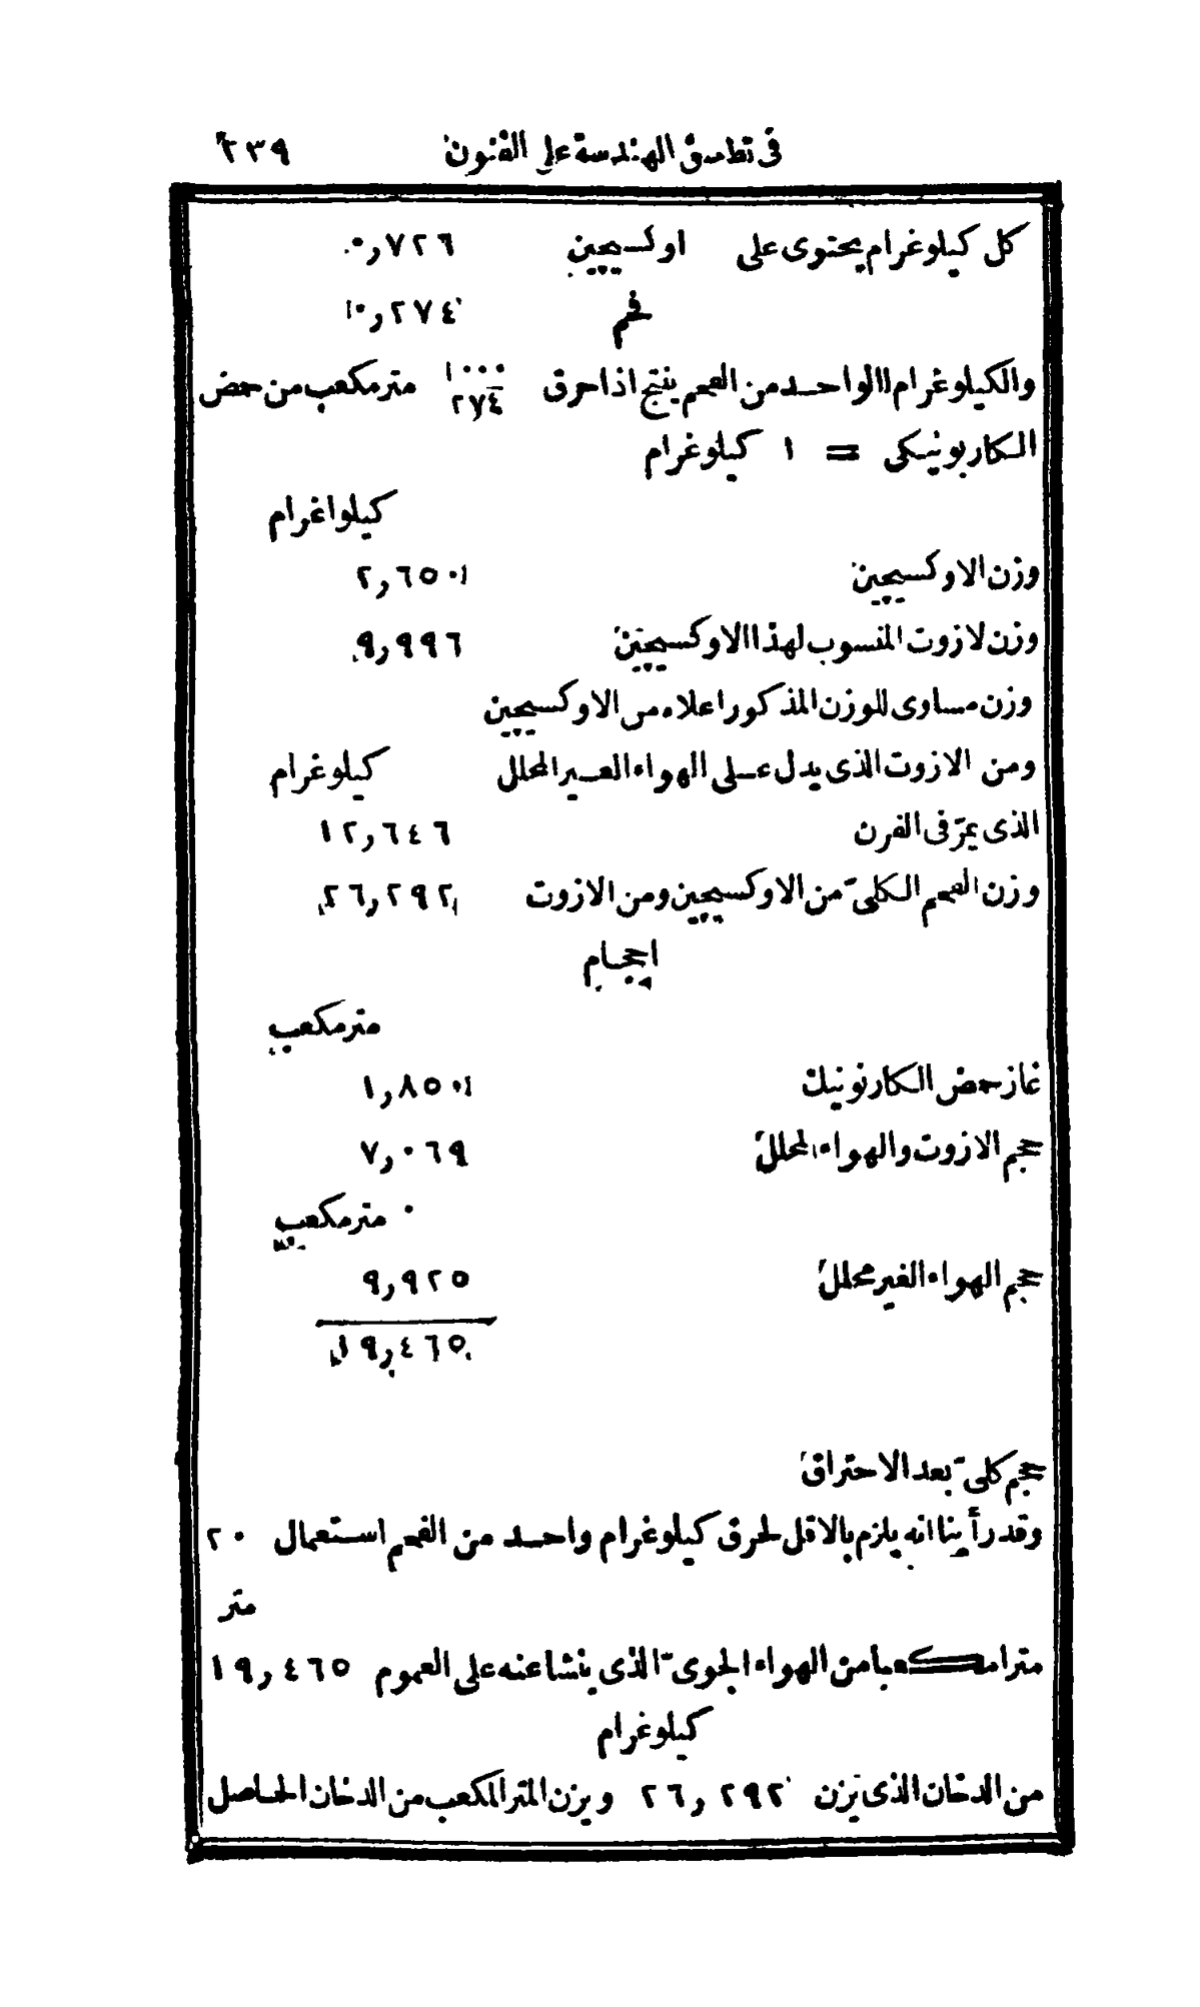 في تطبيق الهندسة على الفنون ٢٣٩
كل كيلوغرام يحتوى على اوكسيجين ٠,٧٢٦
فحم ٠,٢٧٤
والكيلوغرام الواحد من الفحم ينتج اذا احرق ١٠٠٠/٢٧٤ متر مكعب من حمض
الكاربونيكى = ١ كيلوغرام
كيلواغرام
وزن الاوكسيجين ٢,٦٥٠
وزن لازوت المنسوب لهذا الاوكسيجين ٩,٩٩٦
وزن مساوى للوزن المذكور اعلاه من الاوكسيجين
ومن الازوت الذى يدل على الهواء الغير المحلل كيلوغرام
الذى يمرّ فى الفرن ١٢,٦٤٦
وزن الفحم الكلىّ من الاوكسيجين ومن الازوت ٢٦,٢٩٢
احجام
متر مكعب
غاز حمض الكاربونيك ١,٨٥٠
حجم الازوت والهواء المحلل ٧,٠٦٩
متر مكعب
حجم الهواء الغير محلل ٩,٩٢٥
١٩,٤٦٥
حجم كلىّ بعد الاحتراق
وقد رأينا انه يلزم بالاقل لحرق كيلوغرام واحد من الفحم استعمال ٢٠
متر
مترا مكعبا من الهواء الجوىّ الذى ينشا عنه على العموم ١٩,٤٦٥
كيلوغرام
من الدخان الذى يزن ٢٦,٢٩٢ ويزن المتر المكعب من الدخان الحاصل